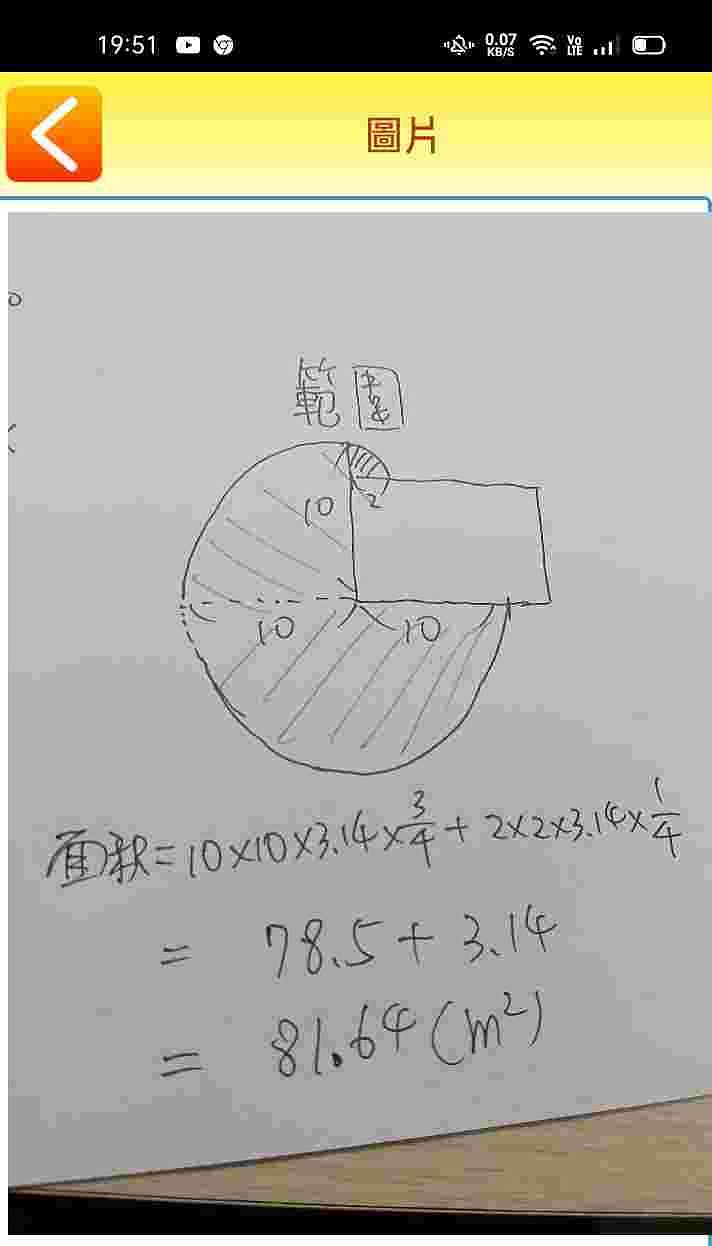 19:51
0.07 KB/S
Vo LTE
圖片
範圍
10
2
10
10
面秋=10×10×3.14×3/4+2×2×3.14×1/4
= 78.5+3.14
= 81.64(m²)